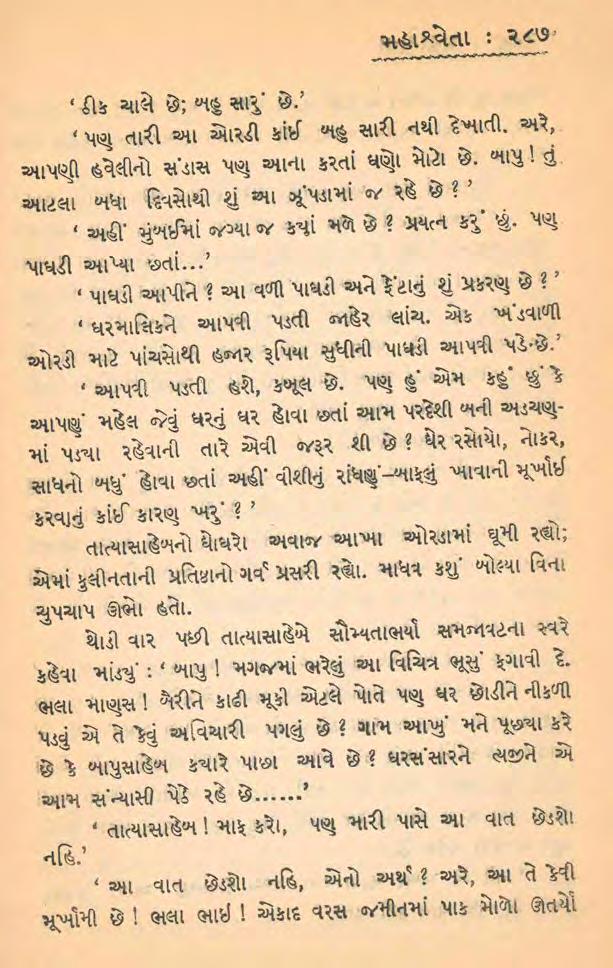 મહાશ્વેતા : ૨૮૭
‘ ઠીક ચાલે છે; બહુ સારું છે.’
‘ પણ તારી આ ઓરડી કાંઈ બહુ સારી નથી દેખાતી. અરે,
આપણી હવેલીનો સંડાસ પણ આના કરતાં ઘણો મોટો છે. બાપુ ! તું
આટલા બધા દિવસોથી શું આ ઝૂંપડામાં જ રહે છે ? ’
‘ અહીં મુંબઈમાં જગ્યા જ ક્યાં મળે છે ? પ્રયત્ન કરું છું. પણ
પાઘડી આપ્યા છતાં...’
‘ પાઘડી આપીને ? આ વળી પાઘડી અને ફેંટાનું શું પ્રકરણ છે ? ’
‘ ઘરમાલિકને આપવી પડતી જાહેર લાંચ. એક ખંડવાળી
ઓરડી માટે પાંચસોથી હજાર રૂપિયા સુધીની પાઘડી આપવી પડે છે.’
‘ આપવી પડતી હશે, કબૂલ છે. પણ હું એમ કહું છું કે
આપણું મહેલ જેવું ઘરનું ઘર હોવા છતાં આમ પરદેશી બની અડચણ-
માં પડ્યા રહેવાની તારે એવી જરૂર શી છે ? ઘેર રસોયો, નોકર,
સાધનો બધું હોવા છતાં અહીં વીશીનું રાંધણું–બાફલું ખાવાની મૂર્ખાઈ
કરવાનું કાંઈ કારણ ખરું ? ’
તાત્યાસાહેબનો ઘોઘરો અવાજ આખા ઓરડામાં ઘૂમી રહ્યો;
એમાં કુલીનતાની પ્રતિષ્ઠાનો ગર્વ પ્રસરી રહ્યો. માધવ કશું બોલ્યા વિના
ચુપચાપ ઊભો હતો.
થોડી વાર પછી તાત્યાસાહેબે સૌમ્યતાભર્યા સમજાવટના સ્વરે
કહેવા માંડ્યું : ‘ બાપુ ! મગજમાં ભરેલું આ વિચિત્ર ભૂસું ફગાવી દે.
ભલા માણસ ! બૈરીને કાઢી મૂકી એટલે પોતે પણ ઘર છોડીને નીકળી
પડવું એ તે કેવું અવિચારી પગલું છે ? ગામ આખું મને પૂછ્યા કરે
છે કે બાપુસાહેબ ક્યારે પાછા આવે છે ? ઘરસંસારને ત્યજીને એ
આમ સંન્યાસી પેઠે રહે છે......’
‘ તાત્યાસાહેબ ! માફ કરો, પણ મારી પાસે આ વાત છેડશો
નહિ.’
‘ આ વાત છેડશો નહિ, એનો અર્થ ? અરે, આ તે કેવી
મૂર્ખામી છે ! ભલા ભાઈ ! એકાદ વરસ જમીનમાં પાક મોળો ઊતર્યો